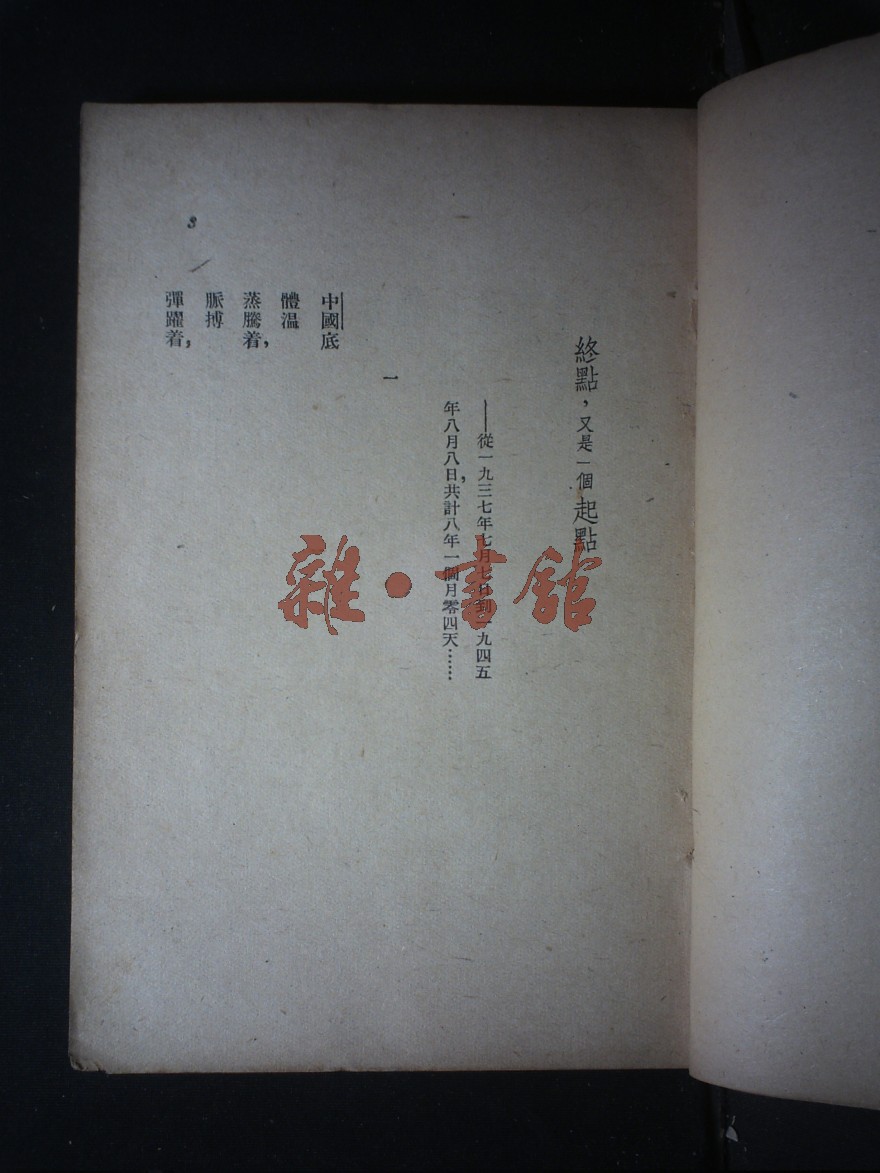 終點，又是一個起點
——從一九三七年七月七日到一九四五
年八月八日，共計八年一個月零四天……
一
中國底
體溫
蒸騰着，
脈搏
彈躍着，
3
雜·書館